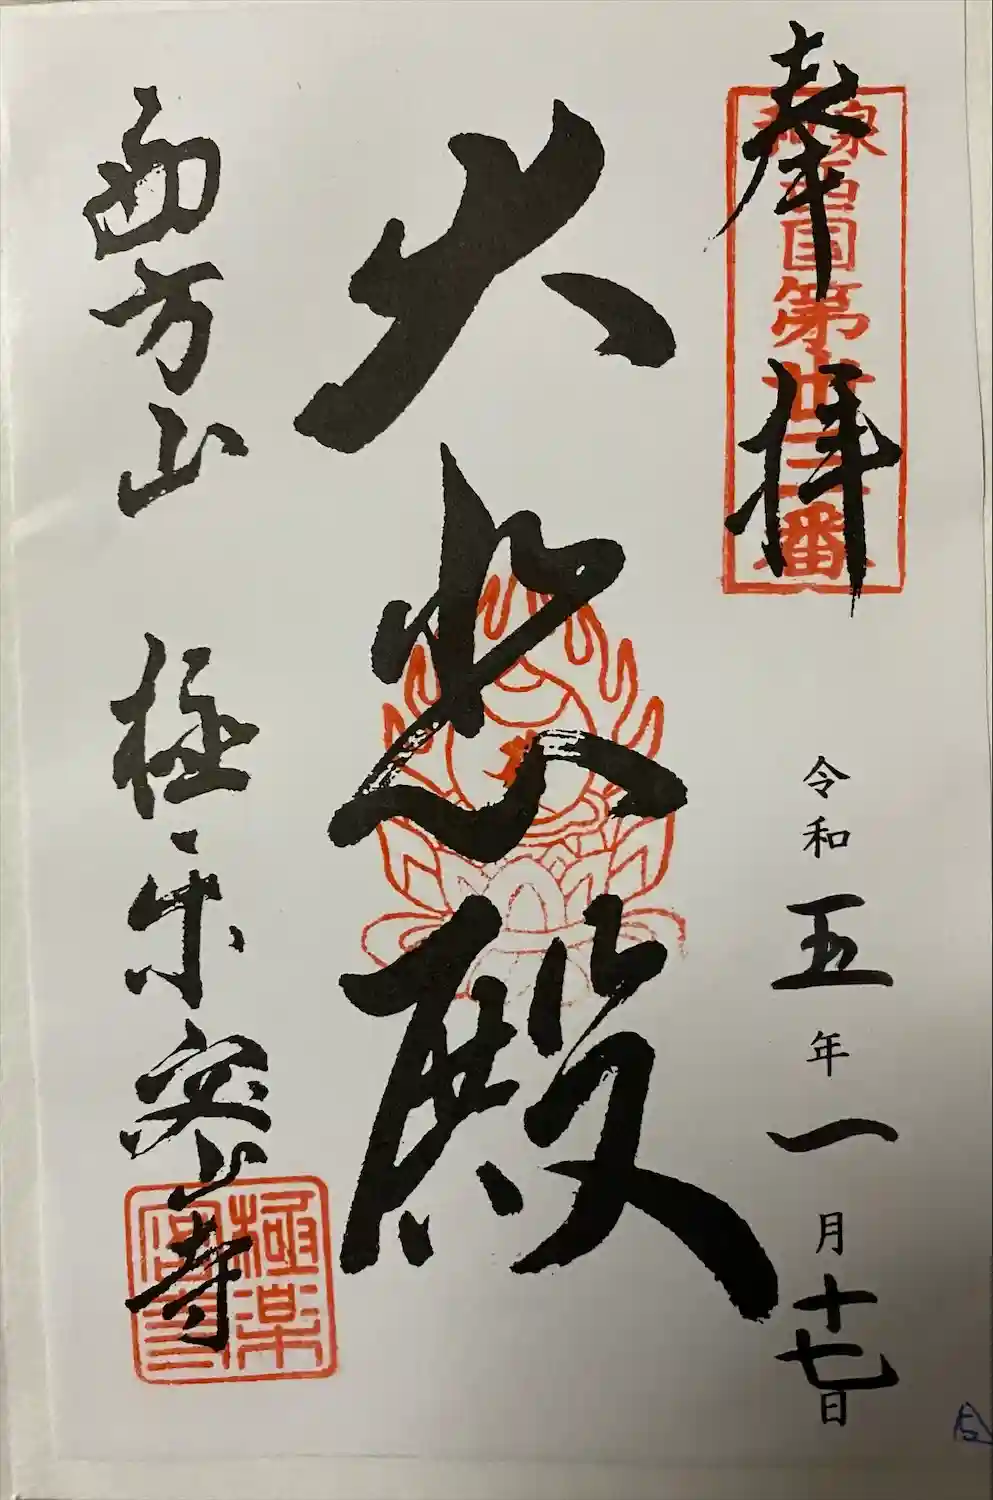 奉拝
和泉西国第廿二番
令和五年一月十七日
大悲殿
西方山 極楽密寺
極楽密寺